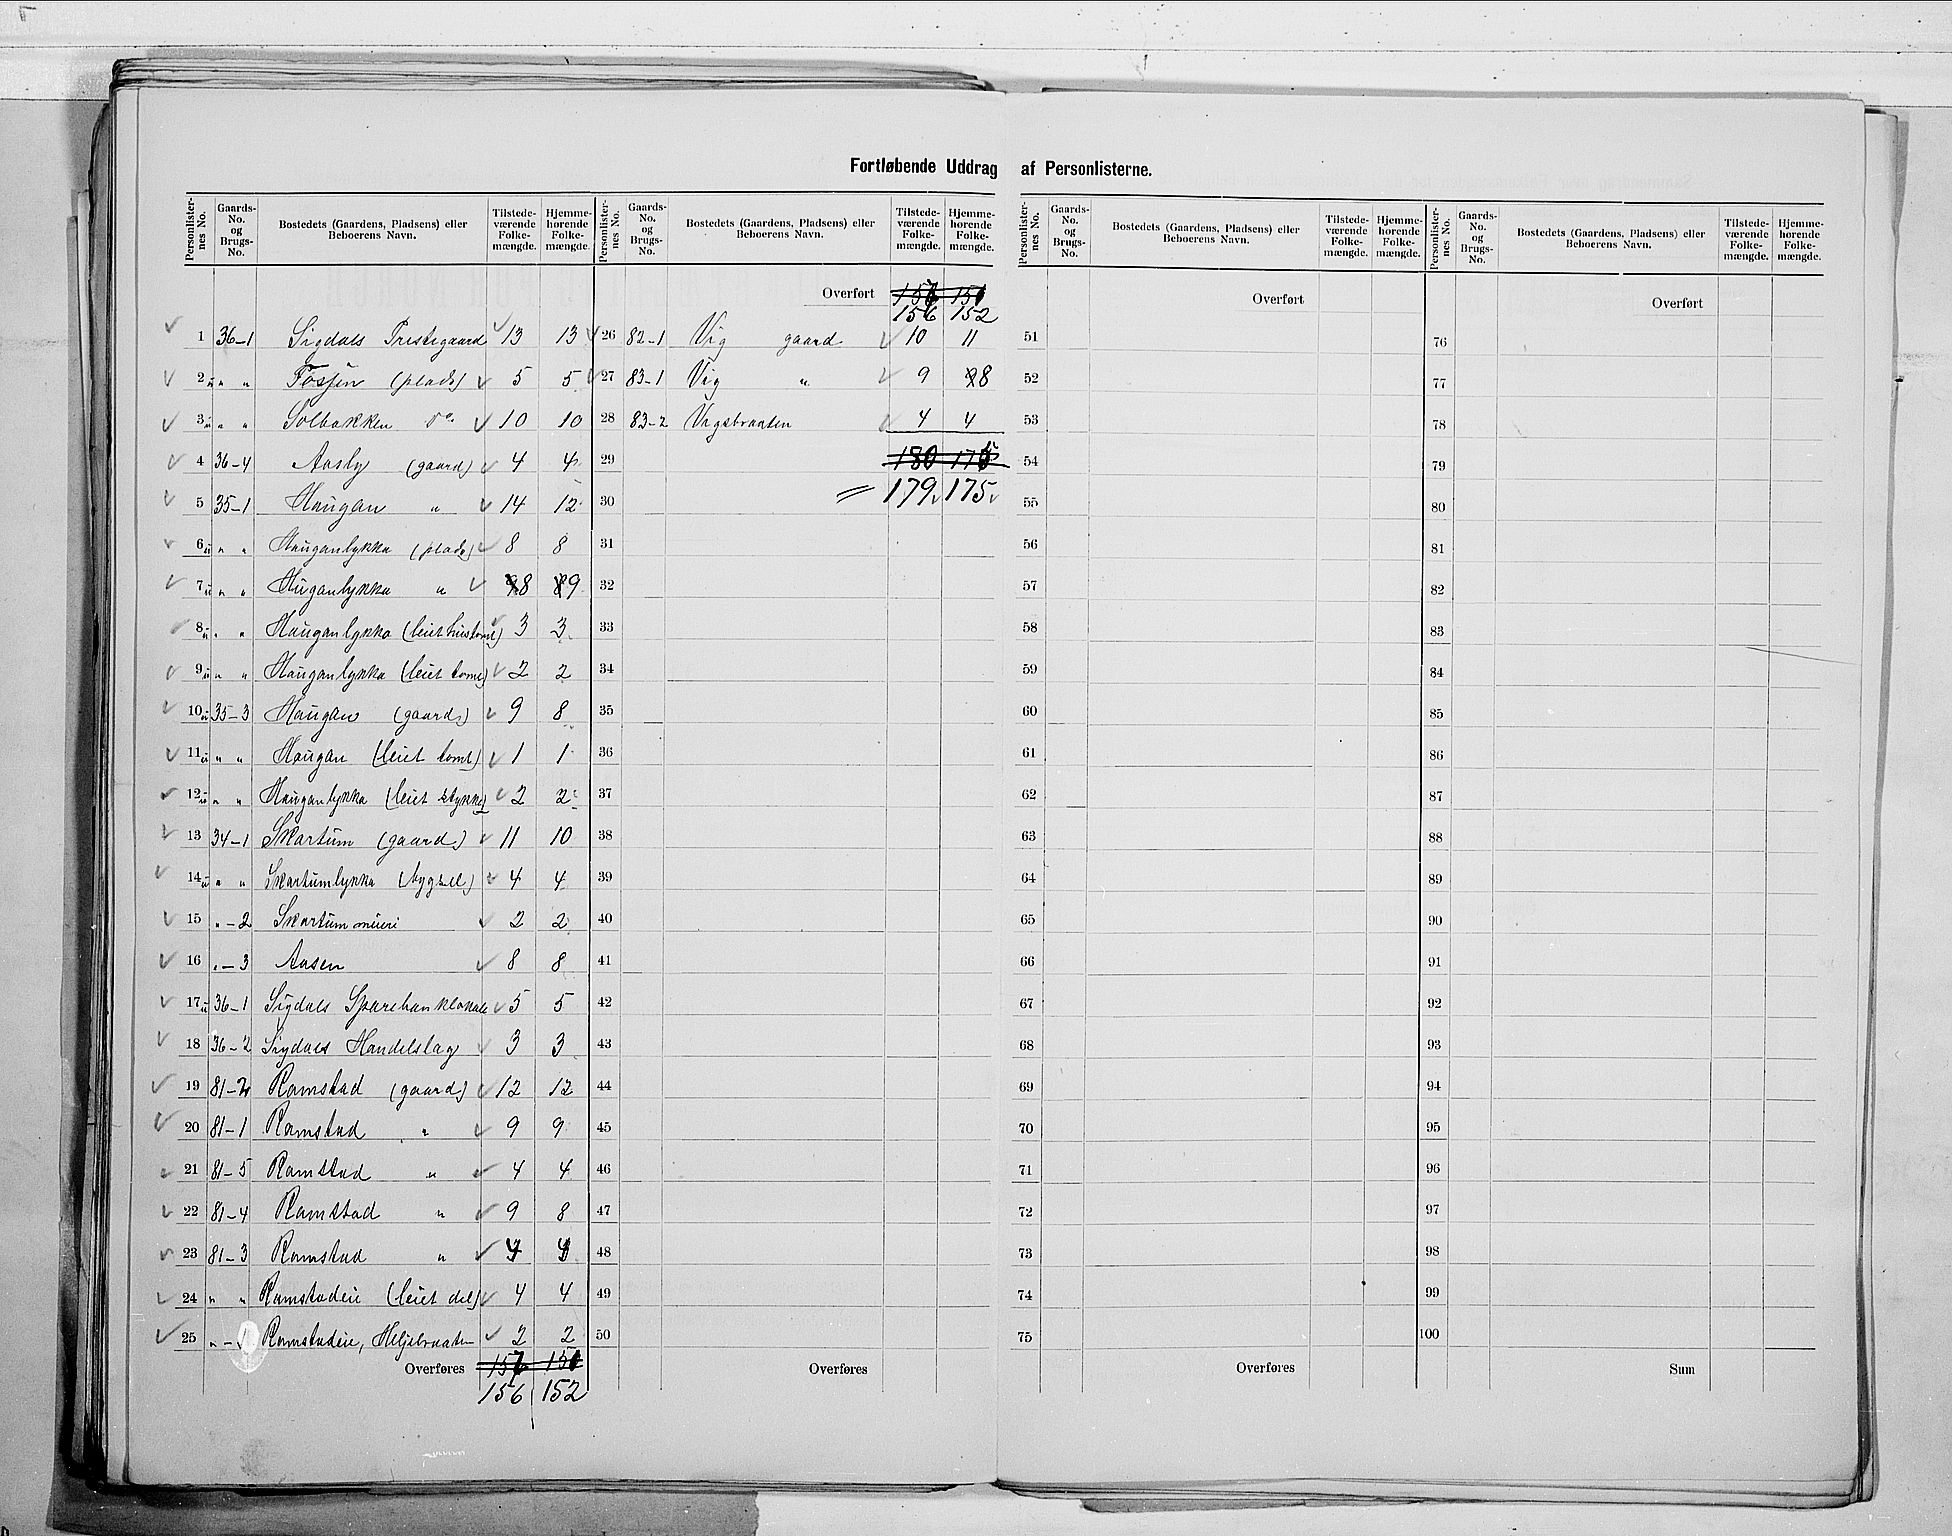 Fortløbende Uddrag af Personlisterne.
Personlisternes No. Gaards-No. og Brugs-No. Bostedets (Gaardens, Pladsens) eller Beboerens Navn. Tilstedeværende Folkemængde. Hjemmehørende Folkemængde.
1 36-1 Sigdals Prestegaard 13 13
2 " " Fossen (plads) 5 5
3 " " Solbakken do 10 10
4 36-4 Aasly (gaard) 4 4
5 35-1 Haugan " 14 12
6 " " Hauganlykka (plads) 8 8
7 " " Hauganlykka " 8 9
8 " " Hauganlykka (leiet hustomt) 3 3
9 " " Hauganlykka (leiet tomt) 2 2
10 35-3 Haugan (gaard) 9 8
11 " " Haugan (leiet tomt) 1 1
12 " " Hauganlykka (leiet stykke) 2 2
13 34-1 Skartum (gaard) 11 10
14 " " Skartumlykka (bygsel) 4 4
15 "-2 Skartummueri 2 2
16 "-3 Aasen 8 8
17 36-1 Sigdals Sparebanklokale 5 5
18 36-2 Sigdals Handelslag 3 3
19 81-2 Ramstad (gaard) 12 12
20 81-1 Ramstad " 9 9
21 81-5 Ramstad " 4 4
22 81-4 Ramstad " 9 8
23 81-3 Ramstad " 4
24 " " Ramstadeie (leiet del) 4 4
25 " - Ramstadeie, Heljebraaten 2 2
Overføres 157 151
156 152
Personlisternes No. Gaards-No. og Brugs-No. Bostedets (Gaardens, Pladsens) eller Beboerens Navn. Tilstedeværende Folkemængde. Hjemmehørende Folkemængde.
Overført 157 151
156 152
26 82-1 Vig gaard 10 11
27 83-1 Vig " 9 8
28 83-2 Vigsbraaten 4 4
29 180 175
30 179 175
31
32
33
34
35
36
37
38
39
40
41
42
43
44
45
46
47
48
49
50
Overføres
Personlisternes No. Gaards-No. og Brugs-No. Bostedets (Gaardens, Pladsens) eller Beboerens Navn. Tilstedeværende Folkemængde. Hjemmehørende Folkemængde.
Overført
51
52
53
54
55
56
57
58
59
60
61
62
63
64
65
66
67
68
69
70
71
72
73
74
75
Overføres
Personlisternes No. Gaards-No. og Brugs-No. Bostedets (Gaardens, Pladsens) eller Beboerens Navn. Tilstedeværende Folkemængde. Hjemmehørende Folkemængde.
Overført
76
77
78
79
80
81
82
83
84
85
86
87
88
89
90
91
92
93
94
95
96
97
98
99
100
Sum